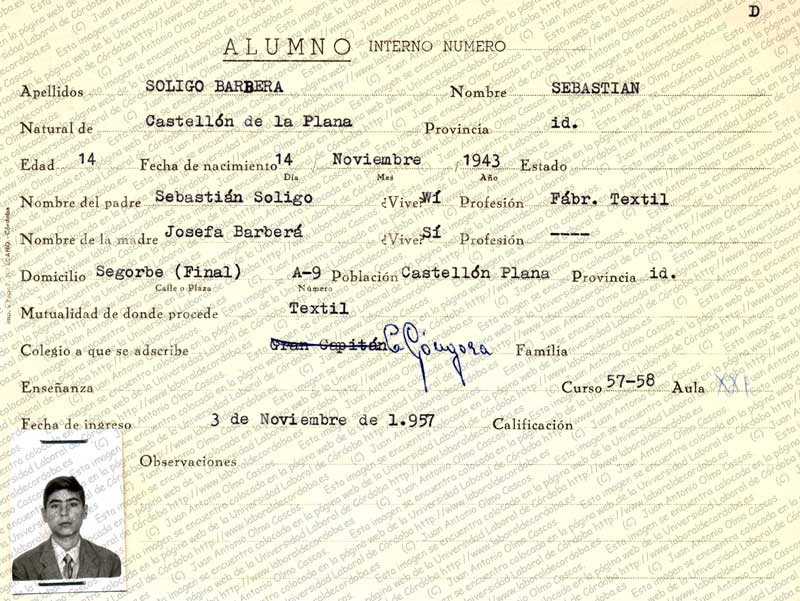 D
ALUMNO INTERNO NUMERO
Apellidos SOLIGO BARBERA Nombre SEBASTIAN
Natural de Castellón de la Plana Provincia id.
Edad 14 Fecha de nacimiento 14 / Noviembre / 1943 Estado
Día Mes Año
Nombre del padre Sebastián Soligo ¿Vive? Wí Profesión Fábr. Textil
Nombre de la madre Josefa Barberá ¿Vive? Sí Profesión ----
Domicilio Segorbe (Final) A-9 Población Castellón Plana Provincia id.
Calle o Plaza Número
Mutualidad de donde procede Textil
Colegio a que se adscribe Gran Capitán Góngora Familia
Enseñanza Curso 57-58 Aula XXI
Fecha de ingreso 3 de Noviembre de 1.957 Calificación
Observaciones
Esta imagen se encuentra colocada en la página web de la Universidad Laboral de Córdoba http://www.laboraldecordoba.es (C) Juan Antonio Olmo Cascos.